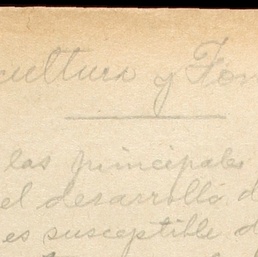 cultura y Fom
las principales
el desarrollo d
es susceptible d